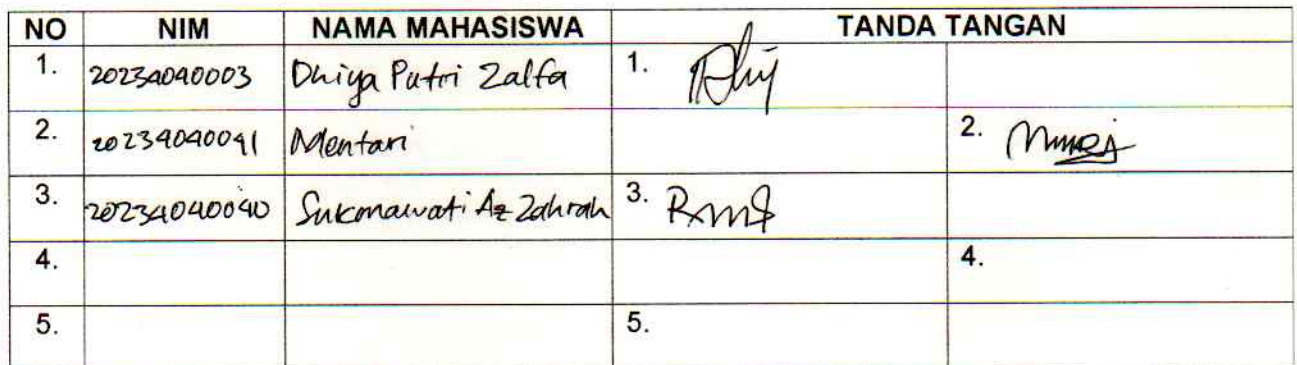 NO NIM NAMA MAHASISWA TANDA TANGAN
1. 20234040003 Dhiya Putri Zalfa 1.
2. 20234040041 Mentari 2.
3. 20234040040 Sukmawati Az Zahrah 3.
4. 4.
5. 5.